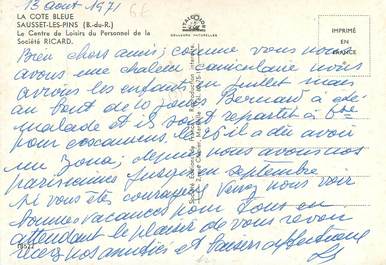 13 aout 1971
LA COTE BLEUE
SAUSSET-LES-PINS (B.-du-R.)
Le Centre de Loisirs du Personnel de la
Société RICARD.
IMPRIMÉ
EN
FRANCE
COULEURS NATURELLES
Bien chers amis; comme vous nous
avons une chaleur caniculaire nous
avions les enfants en juillet mais
au bout de 10 jours Bernard a été
malade et ils sont repartis à
pour il a du avoir
un zona; depuis nous avons nous
parisiennes jusqu'en septembre
si vous êtes courageux venez nous voir
bonnes vacances pour tous en
attendant le plaisir de vous revoir
recevez nos amitiés et baisers affectueux